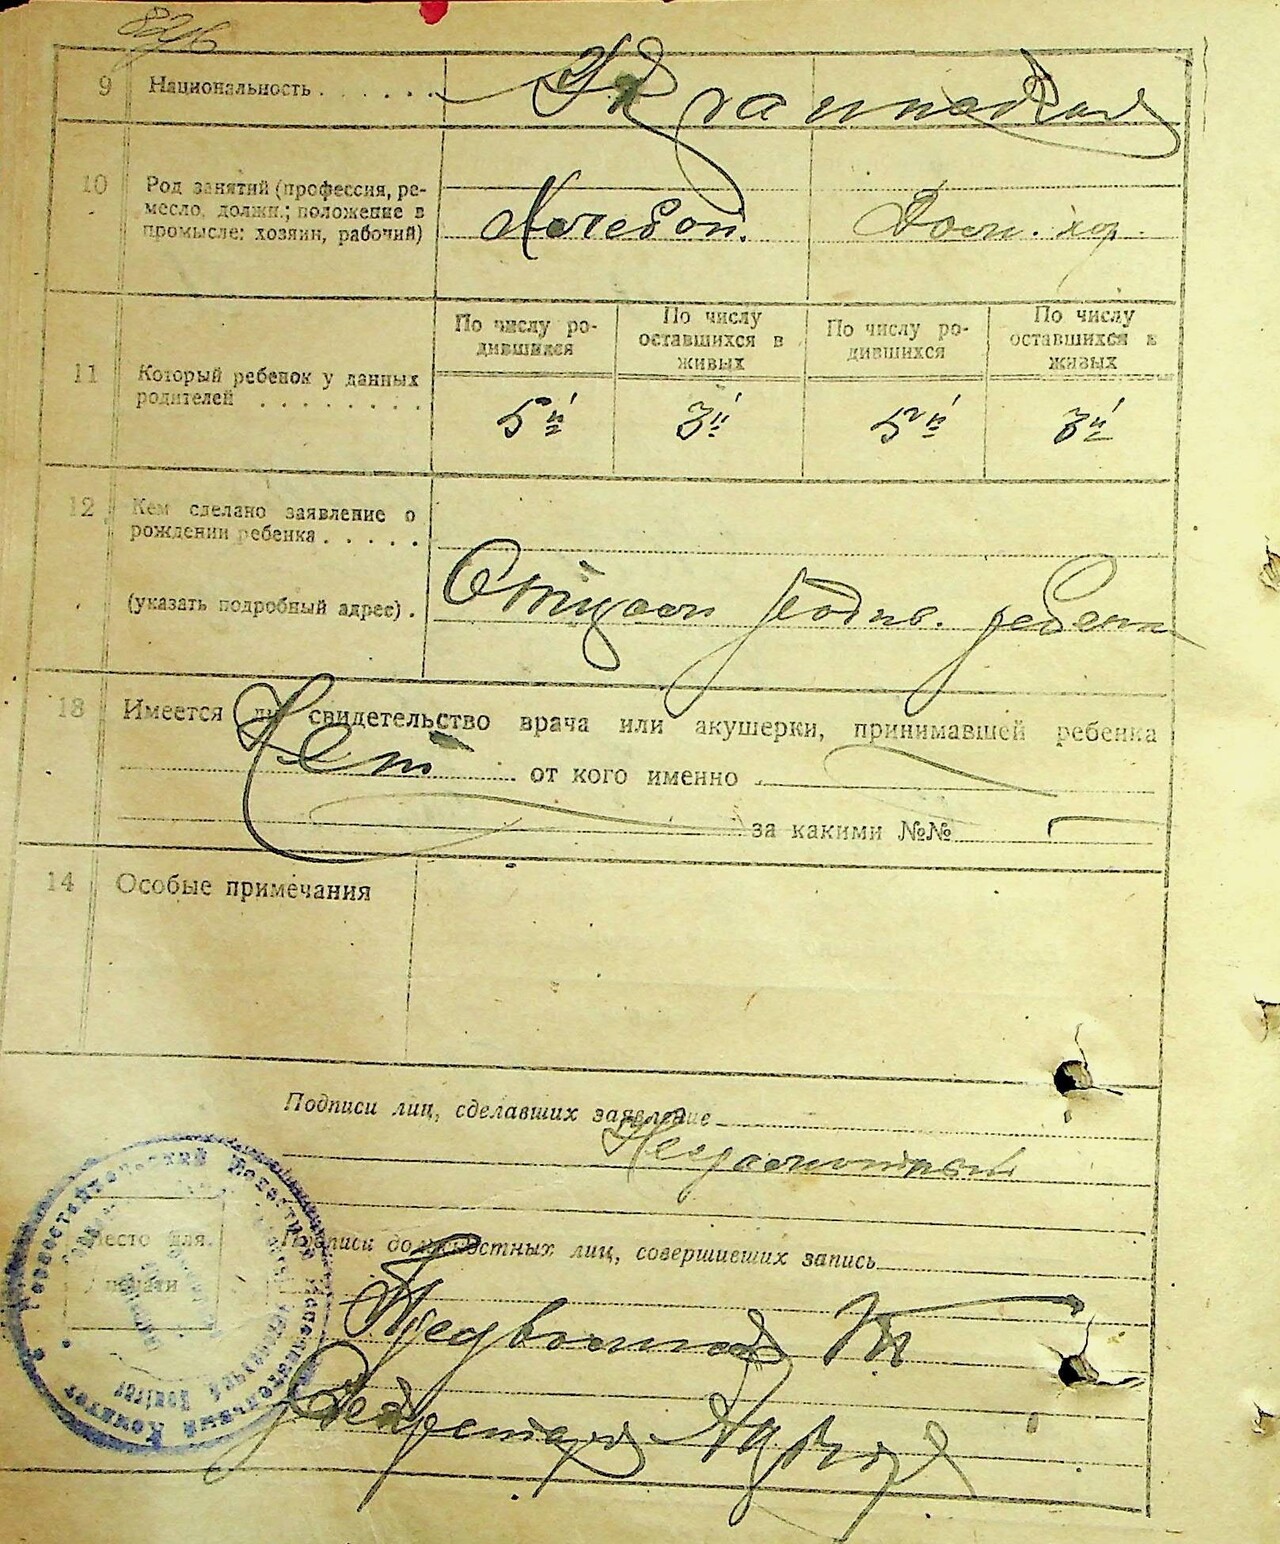 9 Национальность . . . . . . Украинская
10 Род занятий (профессия, ре-
месло, должн.; положение в
промысле: хозяин, рабочий)
Дом. хоз.
По числу ро-
дившихся
По числу
оставшихся в
живых
По числу ро-
дившихся
По числу
оставшихся в
живых
11 Который ребенок у данных
родителей . . . . . . . .
5й 3й 5й 3й
12 Кем сделано заявление о
рождении ребенка . . . . .
(указать подробный адрес) .
Отцом родив. ребенка
13 Имеется ли свидетельство врача или акушерки, принимавшей ребенка
Нет от кого именно
за какими №№
14 Особые примечания
Подписи лиц, сделавших заявление
Неграмотный
Место для
печати
Подписи должностных лиц, совершивших запись
Секретарь
Волостной Исполнительный Комитет